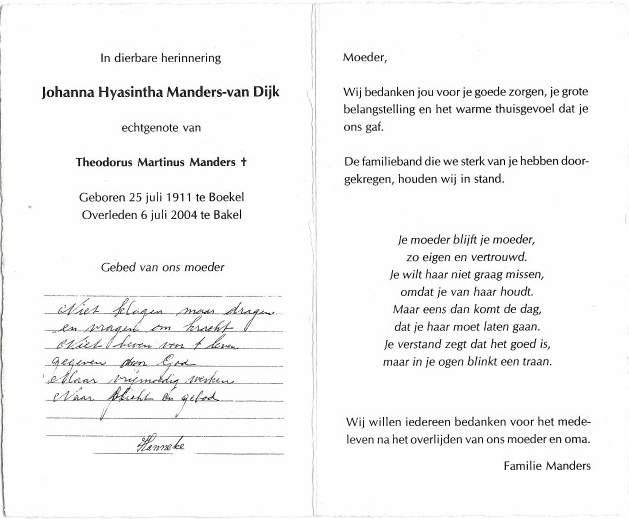 In dierbare herinnering
Johanna Hyasintha Manders-van Dijk
echtgenote van
Theodorus Martinus Manders †
Geboren 25 juli 1911 te Boekel
Overleden 6 juli 2004 te Bakel
Gebed van ons moeder
Niet klagen maar dragen
en vragen om kracht
Niet beven voor 't leven
gegeven door God
Maar vrijmoedig werken
Naar plicht en gebod
Hanneke
Moeder,
Wij bedanken jou voor je goede zorgen, je grote
belangstelling en het warme thuisgevoel dat je
ons gaf.
De familieband die we sterk van je hebben door-
gekregen, houden wij in stand.
Je moeder blijft je moeder,
zo eigen en vertrouwd.
Je wilt haar niet graag missen,
omdat je van haar houdt.
Maar eens dan komt de dag,
dat je haar moet laten gaan.
Je verstand zegt dat het goed is,
maar in je ogen blinkt een traan.
Wij willen iedereen bedanken voor het mede-
leven na het overlijden van ons moeder en oma.
Familie Manders